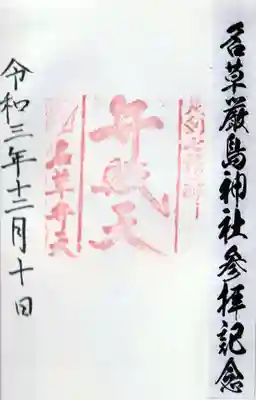 名草厳島神社参拝記念
弁賊天
名草弁天
令和三年十二月十日